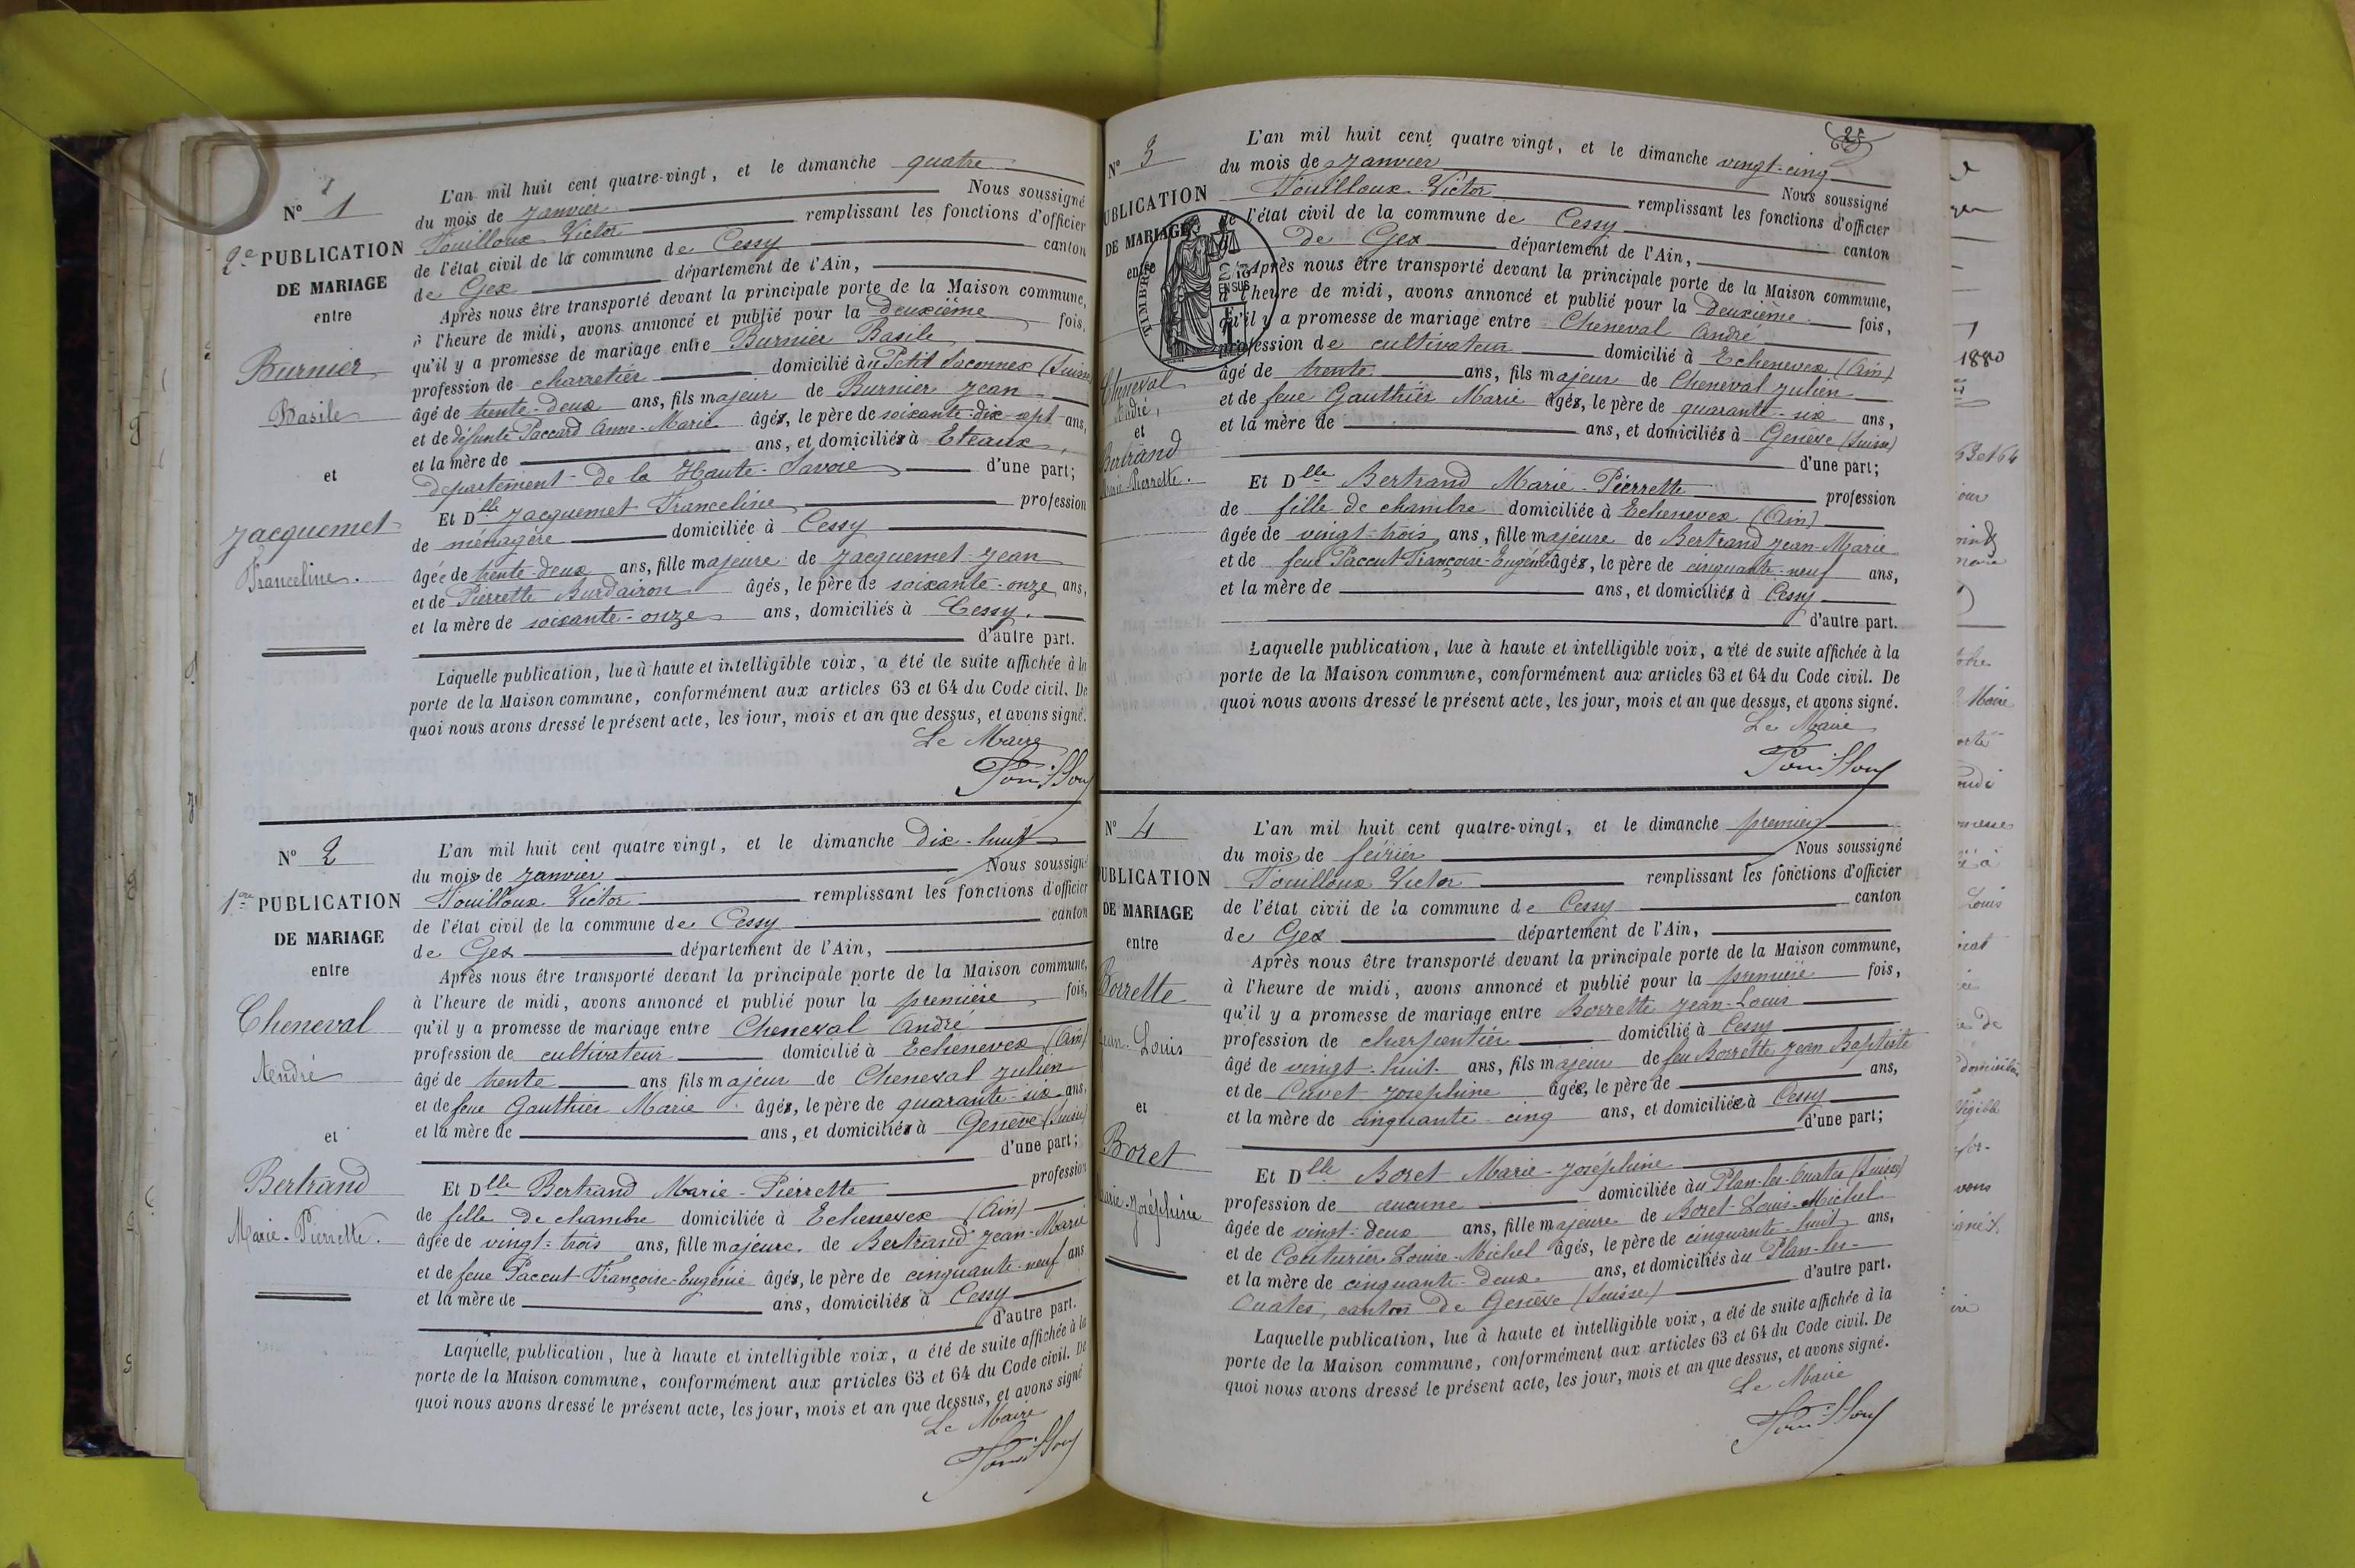 N° 1
2e PUBLICATION
DE MARIAGE
entre
Burnier
Basile
et
Jacquemet
Franceline.
L'an mil huit cent quatre-vingt, et le dimanche quatre
du mois de Janvier Nous soussigné
Fouilloux Victor remplissant les fonctions d'officier
de l'état civil de la commune de Cessy canton
de Gex département de l'Ain,
Après nous être transporté devant la principale porte de la Maison commune,
à l'heure de midi, avons annoncé et publié pour la Deuxième fois,
qu'il y a promesse de mariage entre Burnier Basile
profession de charretier domicilié au Petit Saconnex (Suisse)
âgé de trente-deux ans, fils majeur de Burnier Jean
et de défunte Paccard Anne-Marie âgés, le père de soixante-dix-sept ans,
et la mère de ans, et domiciliés à Eteaux,
département de la Haute-Savoie d'une part;
Et Dlle Jacquemet Franceline profession
de ménagère domiciliée à Cessy
âgée de trente-deux ans, fille majeure de Jacquemet Jean
et de Pierrette Burdairon âgés, le père de soixante-onze ans,
et la mère de soixante-onze ans, domiciliés à Cessy.
d'autre part.
Laquelle publication, lue à haute et intelligible voix, a été de suite affichée à la
porte de la Maison commune, conformément aux articles 63 et 64 du Code civil. De
quoi nous avons dressé le présent acte, les jour, mois et an que dessus, et avons signé.
Le Maire
Fouilloux
N° 2
1re PUBLICATION
DE MARIAGE
entre
Cheneval
André
et
Bertrand
Marie-Pierrette.
L'an mil huit cent quatre vingt, et le dimanche Dix-huit
du mois de Janvier Nous soussigné
Fouilloux Victor remplissant les fonctions d'officier
de l'état civil de la commune de Cessy canton
de Gex département de l'Ain,
Après nous être transporté devant la principale porte de la Maison commune,
à l'heure de midi, avons annoncé et publié pour la première fois,
qu'il y a promesse de mariage entre Cheneval André
profession de cultivateur domicilié à Echenevex (Ain)
âgé de trente ans fils majeur de Cheneval Julien
et de feue Gauthier Marie âgés, le père de quarante-six ans,
et la mère de ans, et domiciliés à Genève (Suisse)
d'une part;
Et Dlle Bertrand Marie-Pierrette profession
de fille de chambre domiciliée à Echenevex (Ain)
âgée de vingt-trois ans, fille majeure de Bertrand Jean-Marie
et de feue Paccut Françoise-Eugénie âgés, le père de cinquante-neuf ans
et la mère de ans, domiciliés à Cessy
d'autre part.
Laquelle publication, lue à haute et intelligible voix, a été de suite affichée à la
porte de la Maison commune, conformément aux articles 63 et 64 du Code civil. De
quoi nous avons dressé le présent acte, les jour, mois et an que dessus, et avons signé
Le Maire
Fouilloux
2e
N° 3
UBLICATION
DE MARIAGE
entre
Cheneval
André,
et
Bertrand
Marie-Pierrette.
L'an mil huit cent quatre vingt, et le dimanche vingt-cinq
du mois de Janvier Nous soussigné
Fouilloux Victor remplissant les fonctions d'officier
de l'état civil de la commune de Cessy canton
de Gex département de l'Ain,
Après nous être transporté devant la principale porte de la Maison commune,
à l'heure de midi, avons annoncé et publié pour la Deuxième fois,
qu'il y a promesse de mariage entre Cheneval André
profession de cultivateur domicilié à Echenevex (Ain)
âgé de trente ans, fils majeur de Cheneval Julien
et de feue Gauthier Marie âgés, le père de quarante-six ans,
et la mère de ans, et domiciliés à Genève (Suisse)
d'une part;
Et Dlle Bertrand Marie-Pierrette profession
de fille de chambre domiciliée à Echenevex (Ain)
âgée de vingt-trois ans, fille majeure de Bertrand Jean-Marie
et de feue Paccut Françoise-Eugénie âgés, le père de cinquante-neuf ans,
et la mère de ans, et domiciliés à Cessy
d'autre part.
Laquelle publication, lue à haute et intelligible voix, a été de suite affichée à la
porte de la Maison commune, conformément aux articles 63 et 64 du Code civil. De
quoi nous avons dressé le présent acte, les jour, mois et an que dessus, et avons signé.
Le Maire
Fouilloux
N° 4
UBLICATION
DE MARIAGE
entre
Borrette
Jean-Louis
et
Boret
Marie-Joséphine
L'an mil huit cent quatre-vingt, et le dimanche premier
du mois de février Nous soussigné
Fouilloux Victor remplissant les fonctions d'officier
de l'état civil de la commune de Cessy canton
de Gex département de l'Ain,
Après nous être transporté devant la principale porte de la Maison commune,
à l'heure de midi, avons annoncé et publié pour la première fois,
qu'il y a promesse de mariage entre Borrette Jean-Louis
profession de charpentier domicilié à Cessy
âgé de vingt-huit ans, fils majeur de feu Borrette Jean Baptiste
et de Cavet Joséphine âgés, le père de ans,
et la mère de cinquante-cinq ans, et domiciliée à Cessy
d'une part;
Et Dlle Boret Marie-Joséphine
profession de aucune domiciliée au Plan-les-Ouates (Suisse)
âgée de vingt-deux ans, fille majeure de Boret Louis-Michel
et de Couturier Louise-Michel âgés, le père de cinquante-huit ans,
et la mère de cinquante-deux ans, et domiciliés au Plan-les-
Ouates, canton de Genève (Suisse) d'autre part.
Laquelle publication, lue à haute et intelligible voix, a été de suite affichée à la
porte de la Maison commune, conformément aux articles 63 et 64 du Code civil. De
quoi nous avons dressé le présent acte, les jour, mois et an que dessus, et avons signé.
Le Maire
Fouilloux
1880
63 et 64
Maire
Louis